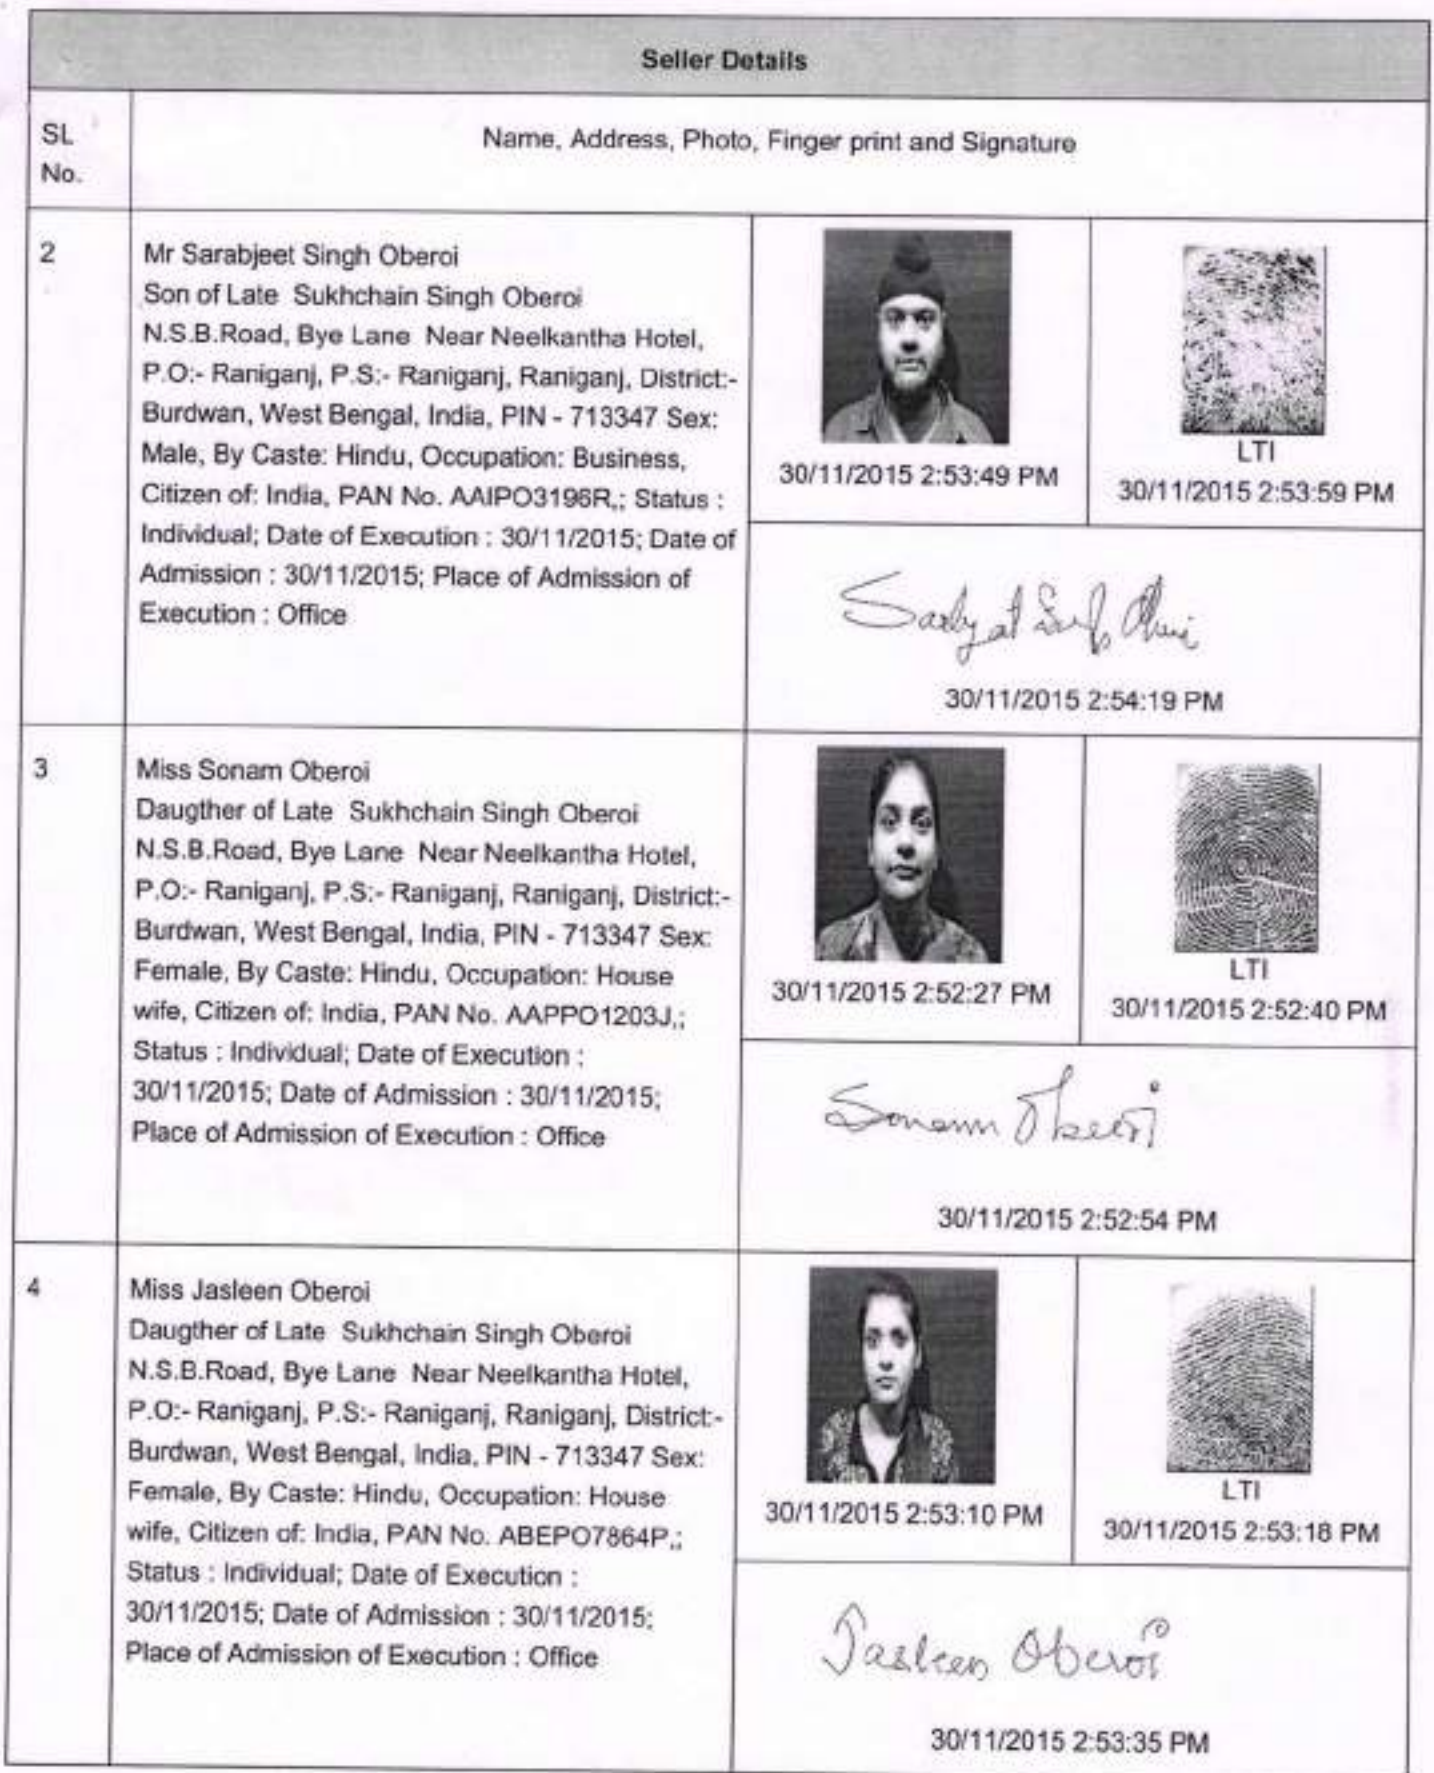 Seller Details
SL No.
Name, Address, Photo, Finger print and Signature
2
Mr Sarabjeet Singh Oberoi
Son of Late Sukhchain Singh Oberoi
N.S.B.Road, Bye Lane Near Neelkantha Hotel,
P.O:- Raniganj, P.S:- Raniganj, Raniganj, District:-
Burdwan, West Bengal, India, PIN - 713347 Sex:
Male, By Caste: Hindu, Occupation: Business,
Citizen of: India, PAN No. AAIPO3196R,; Status :
Individual; Date of Execution : 30/11/2015; Date of
Admission : 30/11/2015; Place of Admission of
Execution : Office
30/11/2015 2:53:49 PM
LTI
30/11/2015 2:53:59 PM
30/11/2015 2:54:19 PM
3
Miss Sonam Oberoi
Daugther of Late Sukhchain Singh Oberoi
N.S.B.Road, Bye Lane Near Neelkantha Hotel,
P.O:- Raniganj, P.S:- Raniganj, Raniganj, District:-
Burdwan, West Bengal, India, PIN - 713347 Sex:
Female, By Caste: Hindu, Occupation: House
wife, Citizen of: India, PAN No. AAPPO1203J,;
Status : Individual; Date of Execution :
30/11/2015; Date of Admission : 30/11/2015;
Place of Admission of Execution : Office
30/11/2015 2:52:27 PM
LTI
30/11/2015 2:52:40 PM
Sonam Oberoi
30/11/2015 2:52:54 PM
4
Miss Jasleen Oberoi
Daugther of Late Sukhchain Singh Oberoi
N.S.B.Road, Bye Lane Near Neelkantha Hotel,
P.O:- Raniganj, P.S:- Raniganj, Raniganj, District:-
Burdwan, West Bengal, India, PIN - 713347 Sex:
Female, By Caste: Hindu, Occupation: House
wife, Citizen of: India, PAN No. ABEPO7864P,;
Status : Individual; Date of Execution :
30/11/2015; Date of Admission : 30/11/2015;
Place of Admission of Execution : Office
30/11/2015 2:53:10 PM
LTI
30/11/2015 2:53:18 PM
Jasleen Oberoi
30/11/2015 2:53:35 PM